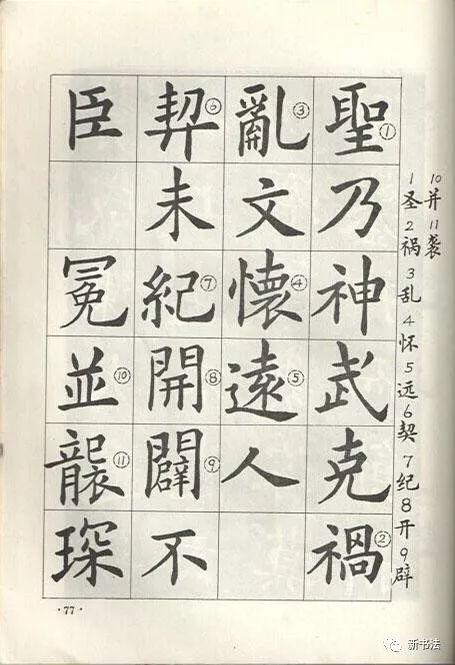 聖①乃神武克禍②
亂③文懷④遠⑤人
契⑥未紀⑦開⑧闢⑨不
臣冕並⑩襲⑪琛
1圣2祸3乱4怀5远6契7纪8开9辟
10并11袭
·77·
新书法